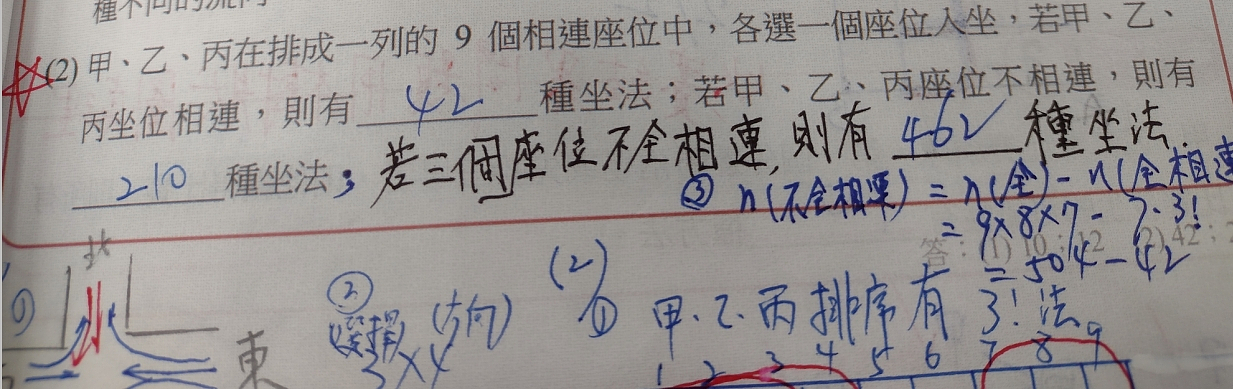 種不同的流向
(2) 甲、乙、丙在排成一列的 9 個相連座位中，各選一個座位入坐，若甲、乙、
丙坐位相連，則有 42 種坐法；若甲、乙、丙座位不相連，則有
210 種坐法；若三個座位不全相連, 則有 462 種坐法.
③ n(不全相連) = n(全) - n(全相連
= 9×8×7 - 7·3!
答：(1) 10；12 (2) 42；2
= 504 - 42
北
①
東
②
選擇 (方向)
3×4
(2)
① 甲.乙.丙排序有 3! 法
1 2 3 4 5 6 7 8 9